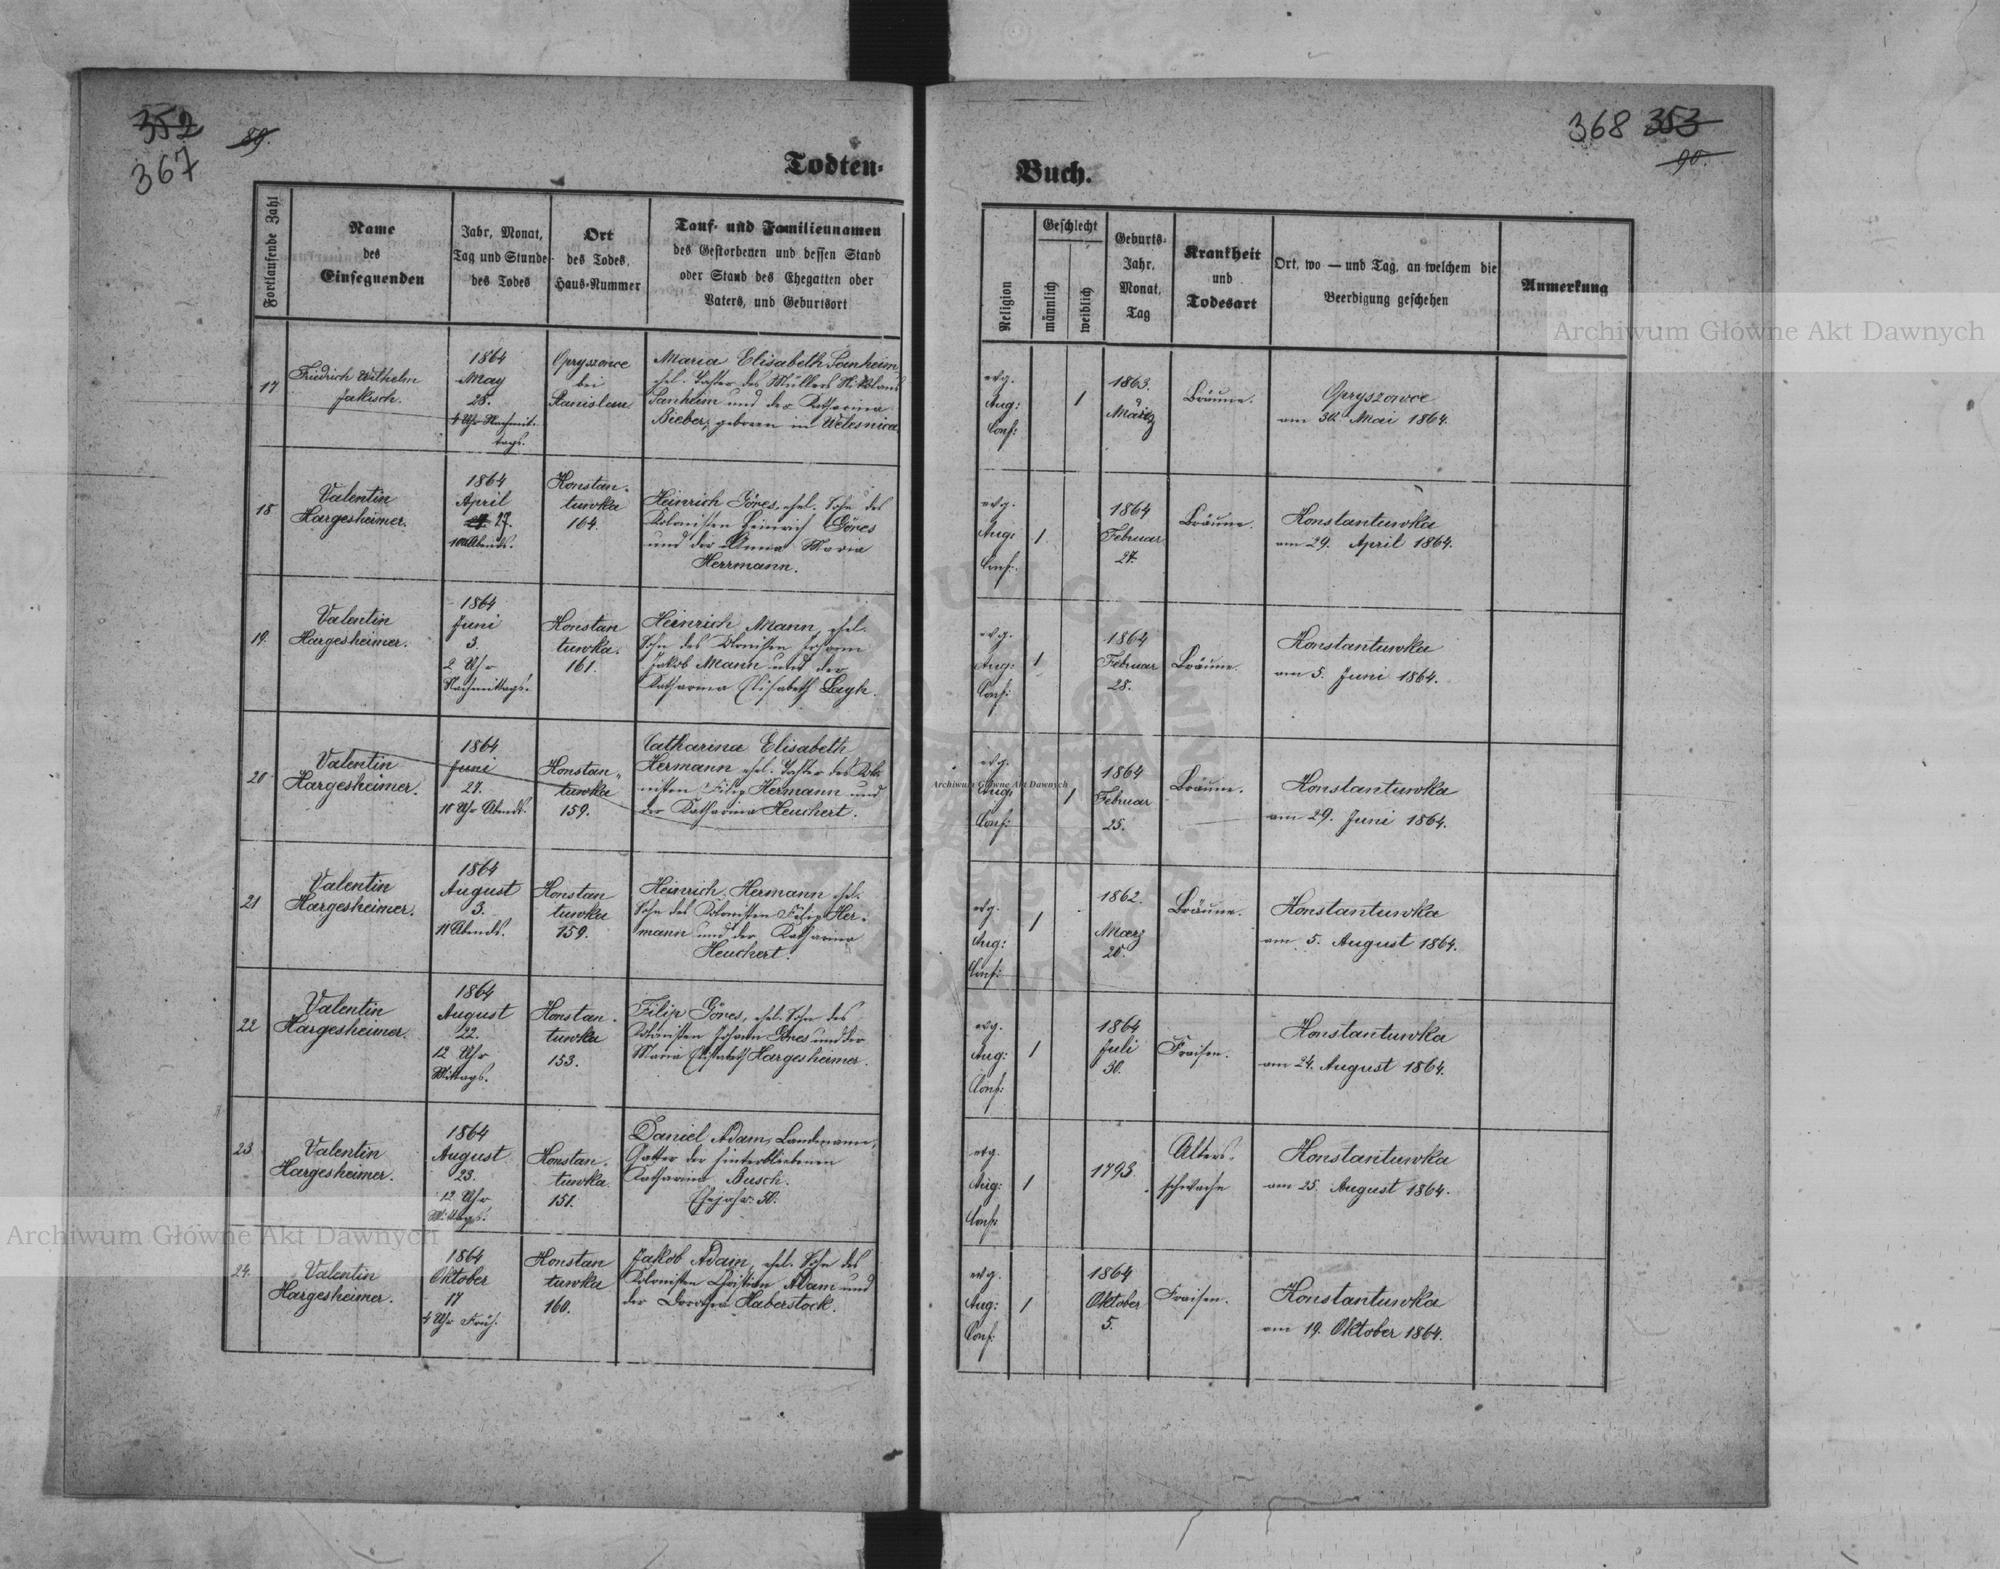 352
89.
367
368 353
90.
Todten-
Buch.
Fortlaufende Zahl
Name
des
Einsegnenden
Jahr, Monat,
Tag und Stunde
des Todes
Ort
des Todes,
Haus-Nummer
Tauf- und Familiennamen
des Gestorbenen und dessen Stand
oder Stand des Ehegatten oder
Vaters, und Geburtsort
Religion
Geschlecht
männlich
weiblich
Geburts-
Jahr,
Monat,
Tag
Krankheit
und
Todesart
Ort, wo — und Tag, an welchem die
Beerdigung geschehen
Anmerkung
17
Friedrich Wilhelm
Jakisch.
1864
May
28.
4 Uhr Nachmit-
tags.
Opryszowce
bei
Stanislau
Maria Elisabeth Sanheim
ehel. Tochter des Müllers Niklaus
Sanheim und der Katharina
Bieber, geboren in Welesnica
evg.
Aug:
Conf:
1
1863.
März
Bräune.
Opryszowce
am 30. Mai 1864.
18
Valentin
Hargesheimer.
1864
April
27.
10 Abends.
Konstan-
tuwka
164.
Heinrich Gönes, ehel. Sohn des
Kolonisten Heinrich Gönes
und der Anna Maria
Herrmann.
evg.
Aug:
Conf:
1
1864
Februar
27.
Bräune.
Konstantuwka
am 29. April 1864.
19.
Valentin
Hargesheimer.
1864
Juni
3.
2 Uhr
Nachmittags.
Konstan
tuwka.
161.
Heinrich Mann, ehel.
Sohn des Kolonisten Johann
Jakob Mann und der
Katharina Elisabeth
evg.
Aug:
Conf:
1
1864
Februar
28.
Bräune.
Konstantuwka
am 5. Juni 1864.
20
Valentin
Hargesheimer.
1864
Juni
27.
10 Uhr Abends.
Konstan-
tuwka
159.
Catharina Elisabeth
Hermann ehel. Tochter des Kolo
nisten Filip Hermann und
der Katharina Heuchert.
evg.
Aug:
Conf:
1
1864
Februar
25.
Bräune.
Konstantuwka
am 29. Juni 1864.
21
Valentin
Hargesheimer.
1864
August
3.
11 Abends.
Konstan
tuwka
159.
Heinrich Hermann ehel.
Sohn des Kolonisten Filip Her-
mann und der Katharina
Heuchert.
evg.
Aug:
Conf:
1
1862.
Maerz
20.
Bräune.
Konstantuwka
am 5. August 1864.
22
Valentin
Hargesheimer.
1864
August
22.
12 Uhr
Mittags.
Konstan-
tuwka
153.
Filip Gönes, ehel. Sohn des
Kolonisten Johann Gönes und der
Maria Elisabeth Hargesheimer.
evg.
Aug:
Conf:
1
1864
Juli
30.
Fraisen.
Konstantuwka
am 24. August 1864.
23
Valentin
Hargesheimer.
1864
August
23.
12 Uhr
Mittags.
Konstan-
tuwka
151.
Daniel Adam, Landmann,
Gatter der hinterbliebenen
Katharina Busch.
Ehejahr: 50.
evg.
Aug:
Conf:
1
1793.
Alters-
schwache
Konstantuwka
am 25. August 1864.
24.
Valentin
Hargesheimer.
1864
Oktober
17
4 Uhr Früh.
Konstan
tuwka
160.
Jakob Adam, ehel. Sohn des
Kolonisten Christian Adam und
der Dorothea Haberstock.
evg.
Aug:
Conf:
1
1864
Oktober
5.
Fraisen.
Konstantuwka
am 19. Oktober 1864.
Archiwum Główne Akt Dawnych
Archiwum Główne Akt Dawnych
Archiwum Główne Akt Dawnych